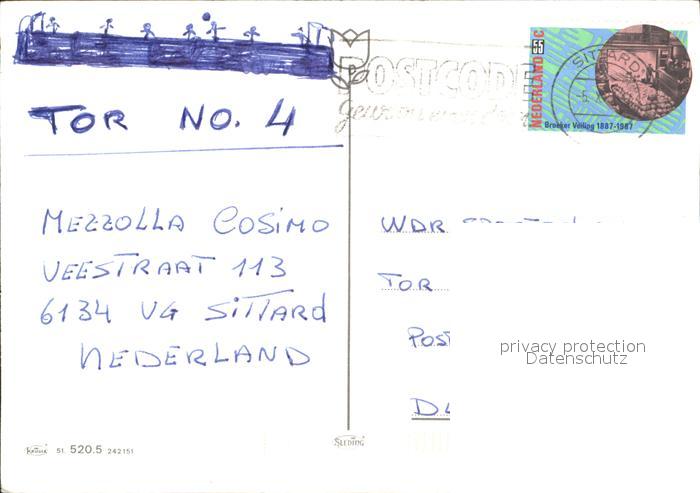 TOR NO. 4
MEZZOLLA COSIMO
VEESTRAAT 113
6134 VG SITTARD
NEDERLAND
KRÜGER 51. 520.5 242151
SLEDING
POSTCODE
SITTARD
NEDERLAND 55 C
Broeker Veiling 1887-1987
WDR
TOR
POST
D
privacy protection
Datenschutz